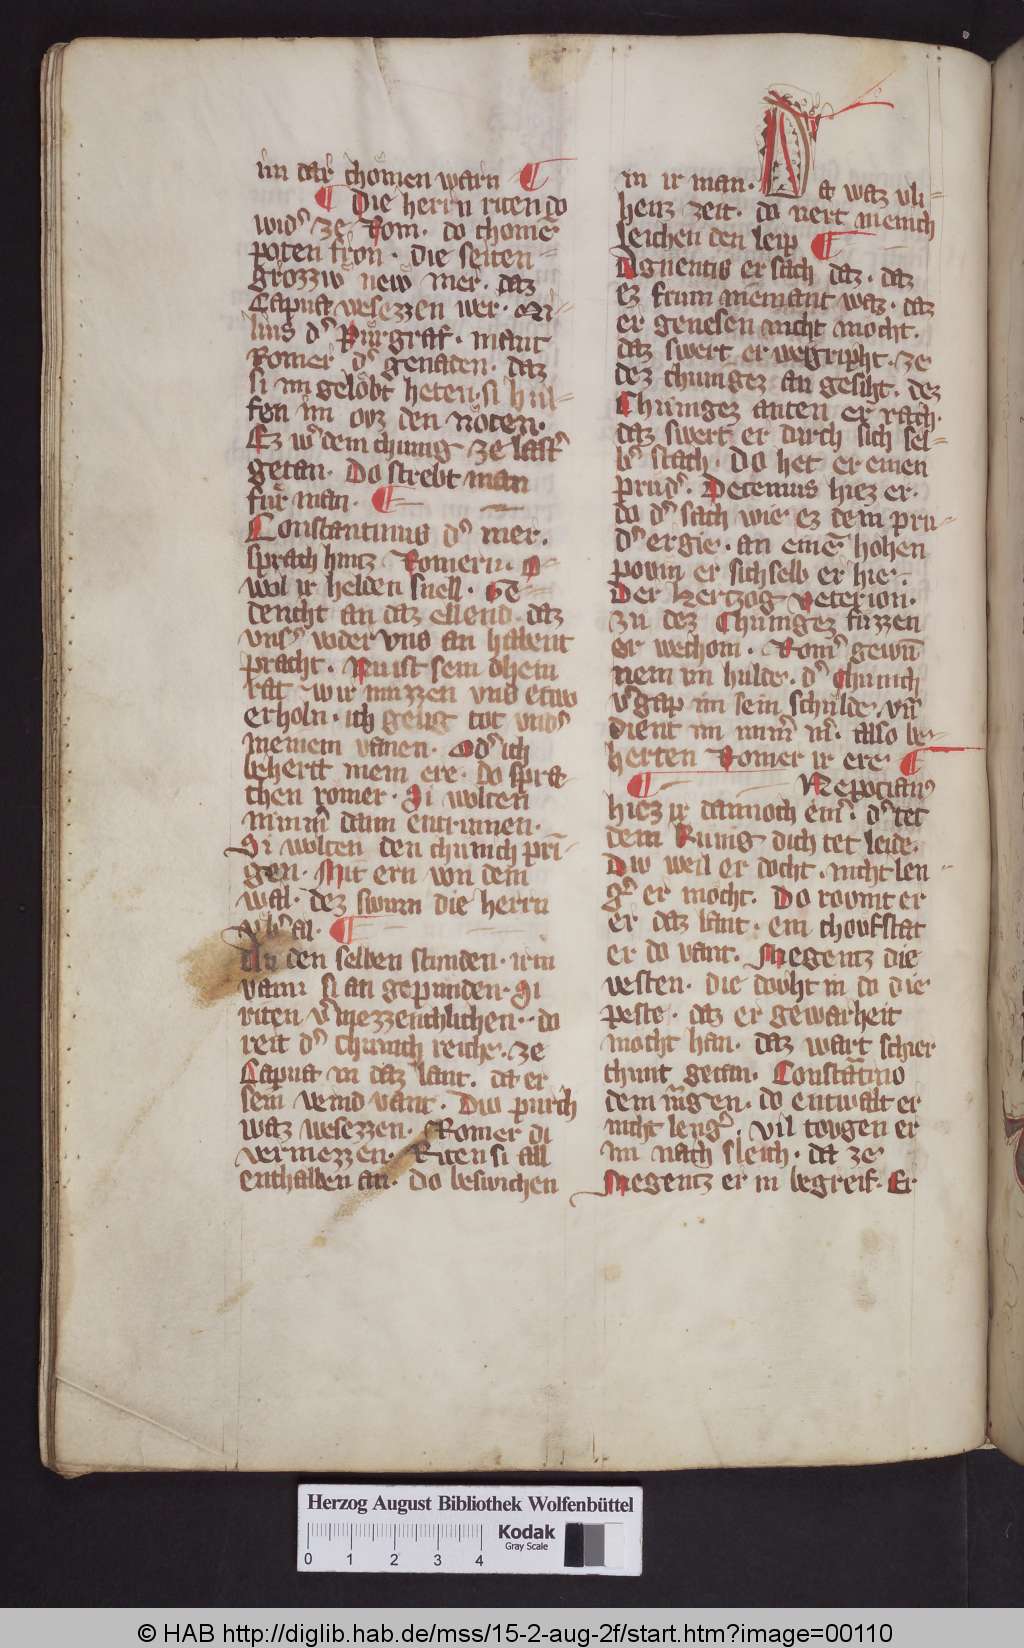 im dar chomen warn ¶
¶ Die herrn riten do
wid᷑ ze Rom. do chomē
poten fron. die seiten
grözziv newͤ mer. daz
Capua wesezzen wer. Mi-
lius d᷑ Purgraf. mant
Romer d᷑ genaden. daz
si im gelobt heten. si hul-
fen im ovz den nöten.
Ez w᷑ dem chunig ze last᷑
getan. Do strebt man
für man. ¶
Constantinus d᷑ mer.
sprach hintz Romern. O
wol ir helden snell. Ge-
dencht an daz ellend. daz
vns᷑ voder vns an habent
pracht. Nu ist sein dhein
rat wir muzzen vns etwo
erholn. ich gelig tot vnd᷑
meinem vanen. Od᷑ ich
behertt mein ere. do spra-
chen romer. Si wolten
nimm᷑ dann entrinnen.
Si wolten den chunich prī-
gen. Mit ern von dem
wal. dez swurn die herrn
vb᷑al. ¶
An den selben stunden. irn
vann si an gepunden. Si
riten v᷑mezzenchlichen. do
reit d᷑ chunich reiche. ze
Capua in daz lant. da er
sein veind vant. Div purch
waz wesezzen. Romer di
vermezzen. Riten si all
enthalben an. do beswichen
in ir man. Da waz vli-
henz zeit. do nert menich
leichen den leip ¶
Agnentis er sach daz. daz
ez frum niemant waz. daz
er genesen nicht mocht.
daz swert er wegripht. ze
dez chunigez an gesiht. dez
Chunigez anten er rach.
daz swert er durch sich sel-
b᷑ stach. Do het er einen
prud᷑. Decemus hiez er.
do d᷑ sach wie ez dem pru-
d᷑ ergie. an einē hohen
powm er sich selb er hie.
Der Hertzog Veterion.
zu dez Chunigez fuzzen
er wechom. Rom᷑ gewun
nem im hulde. d᷑ chunich
v᷑gap im sein schulde. vn̄
dient im nim᷑ m᷑. Also be-
herten Romer ir ere ¶
¶ Nepocian᷒
hiez ir dannoch ein᷑. d᷑ tet
dem Kunig dich tet leide.
Div weil er docht. nicht len-
g᷑ er mocht. Do rovmt er
er daz lant. ein chovfstat
er do vant. Megentz die
vesten. die dowht in do die
peste. daz er gewarheit
mocht han. daz wart schier
chunt getan. Constātino
dem iūgen. do entwalt er
nicht leng᷑. vil tovgen er
im nach sleich. da ze
Megentz er in begreif. Er
Herzog August Bibliothek Wolfenbüttel
Kodak
Gray Scale
0 1 2 3 4
© HAB http://diglib.hab.de/mss/15-2-aug-2f/start.htm?image=00110